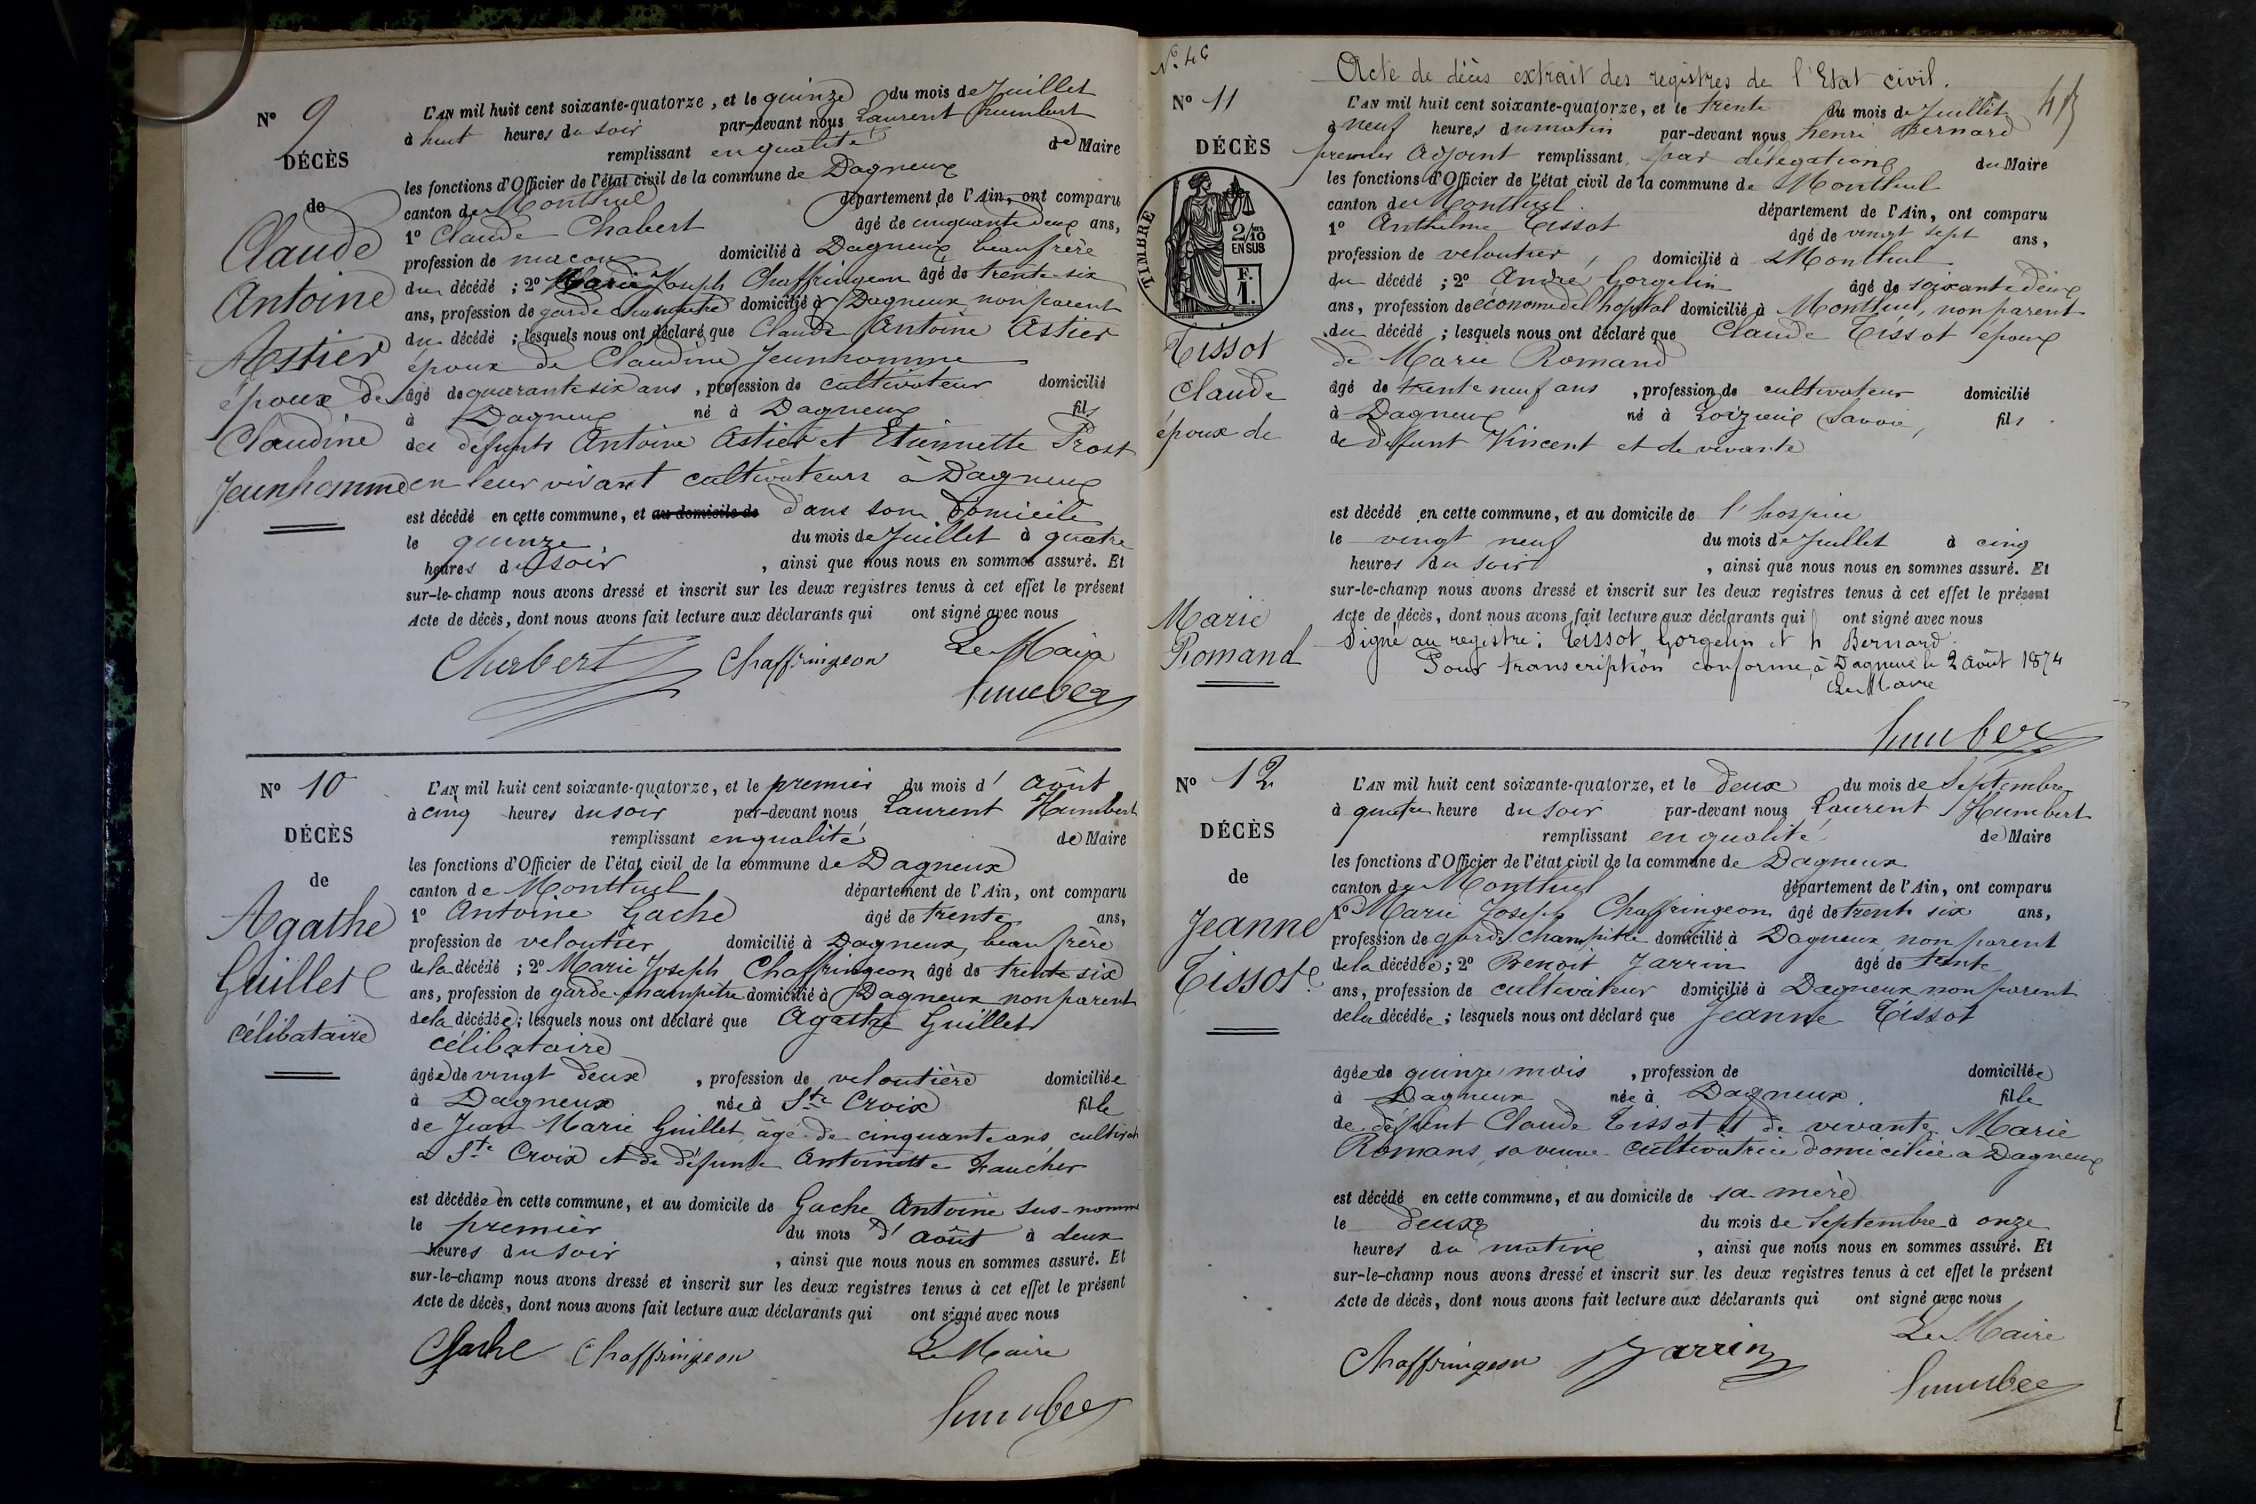 N° 9
DÉCÈS
de
Claude
Antoine
Astier
époux de
Claudine
Jeunhomme
L'AN mil huit cent soixante-quatorze, et le quinze du mois de Juillet
à huit heures du soir par-devant nous Laurent Humbert
remplissant en qualité de Maire
les fonctions d'Officier de l'état civil de la commune de Dagneux
canton de Montluel département de l'Ain, ont comparu
1° Claude Chabert âgé de cinquante deux ans,
profession de maçon domicilié à Dagneux beau frère
du décédé ; 2° Marie Joseph Chaffringeon âgé de trente six
ans, profession de garde champêtre domicilié à Dagneux non parent
du décédé ; lesquels nous ont déclaré que Claude Antoine Astier
époux de Claudine Jeunhomme
âgé de quarante six ans, profession de cultivateur domicilié
à Dagneux né à Dagneux fils
des défunts Antoine Astier et Etiennette Prost
en leur vivant cultivateurs à Dagneux
est décédé en cette commune, et au domicile de dans son domicile
le quinze du mois de Juillet à quatre
heures du soir, ainsi que nous nous en sommes assuré. Et
sur-le-champ nous avons dressé et inscrit sur les deux registres tenus à cet effet le présent
Acte de décès, dont nous avons fait lecture aux déclarants qui ont signé avec nous
Chabert Chaffringeon Le Maire
Humbert
N° 10
DÉCÈS
de
Agathe
Guillet
célibataire
L'AN mil huit cent soixante-quatorze, et le premier du mois d' août
à cinq heures du soir par-devant nous Laurent Humbert
remplissant en qualité de Maire
les fonctions d'Officier de l'état civil de la commune de Dagneux
canton de Montluel département de l'Ain, ont comparu
1° Antoine Gache âgé de trente ans,
profession de veloutier domicilié à Dagneux, beau frère
de la décédé ; 2° Marie Joseph Chaffringeon âgé de trente six
ans, profession de garde champêtre domicilié à Dagneux non parent
de la décédée ; lesquels nous ont déclaré que Agathe Guillet
célibataire
âgée de vingt deux, profession de veloutière domiciliée
à Dagneux née à Ste Croix fille
de Jean Marie Guillet, âgé de cinquante ans, cultivat
à Ste Croix et de défunte Antoinette Faucher
est décédée en cette commune, et au domicile de Gache Antoine sus-nommé
le premier du mois d' août à deux
heures du soir, ainsi que nous nous en sommes assuré. Et
sur-le-champ nous avons dressé et inscrit sur les deux registres tenus à cet effet le présent
Acte de décès, dont nous avons fait lecture aux déclarants qui ont signé avec nous
Gache Chaffringeon Le Maire
Humbert
N° 46
Acte de décès extrait des registres de l'Etat civil.
N° 11
DÉCÈS
TIMBRE
2/10
EN SUS
F.
1.
Tissot
Claude
époux de
Marie
Romand
L'AN mil huit cent soixante-quatorze, et le trente du mois de Juillet
à neuf heures du matin par-devant nous henri Bernard
premier adjoint remplissant par délégation du Maire
les fonctions d'Officier de l'état civil de la commune de Montluel
canton de Montluel département de l'Ain, ont comparu
1° Anthelme Tissot âgé de vingt sept ans,
profession de veloutier, domicilié à Montluel
du décédé ; 2° André Gorgelin âgé de soixante deux
ans, profession de économe de l'hopital domicilié à Montluel, non parent
du décédé ; lesquels nous ont déclaré que Claude Tissot époux
de Marie Romand
âgé de trente neuf ans, profession de cultivateur domicilié
à Dagneux né à Loizieux Savoie, fils
de défunt Vincent et de vivante
est décédé en cette commune, et au domicile de l'hospice
le vingt neuf du mois de Juillet à cinq
heures du soir, ainsi que nous nous en sommes assuré. Et
sur-le-champ nous avons dressé et inscrit sur les deux registres tenus à cet effet le présent
Acte de décès, dont nous avons fait lecture aux déclarants qui ont signé avec nous
Signé au registre : Tissot, Gorgelin et h Bernard.
Pour transcription conforme, à Dagneux le 2 août 1874
Le Maire
Humbert
N° 12
DÉCÈS
de
Jeanne
Tissot
L'AN mil huit cent soixante-quatorze, et le deux du mois de Septembre
à quatre heure du soir par-devant nous Laurent Humbert
remplissant en qualité de Maire
les fonctions d'Officier de l'état civil de la commune de Dagneux
canton de Montluel département de l'Ain, ont comparu
1° Marie Joseph Chaffringeon âgé de trente six ans,
profession de garde champêtre domicilié à Dagneux non parent
de la décédée ; 2° Benoit Jarrin âgé de trente
ans, profession de cultivateur domicilié à Dagneux non parent
de la décédée ; lesquels nous ont déclaré que Jeanne Tissot
âgée de quinze mois, profession de domiciliée
à Dagneux née à Dagneux. fille
de défunt Claude Tissot et de vivante Marie
Romans, sa veuve cultivatrice domiciliée à Dagneux
est décédé en cette commune, et au domicile de sa mère
le deux du mois de Septembre à onze
heures du matin, ainsi que nous nous en sommes assuré. Et
sur-le-champ nous avons dressé et inscrit sur les deux registres tenus à cet effet le présent
Acte de décès, dont nous avons fait lecture aux déclarants qui ont signé avec nous
Chaffringeon Jarrin Le Maire
Humbert